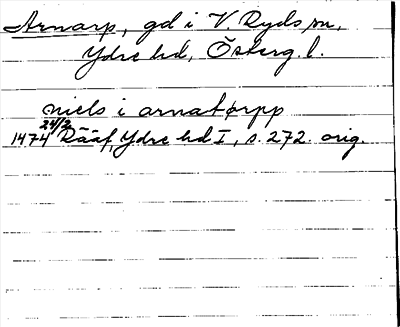 Arnarp, gd i V Ryds sn,
Ydre hd, Österg. l.
niels i arnatørpp
1474 24/2 Rääf, Ydre hd I, s. 272. orig.